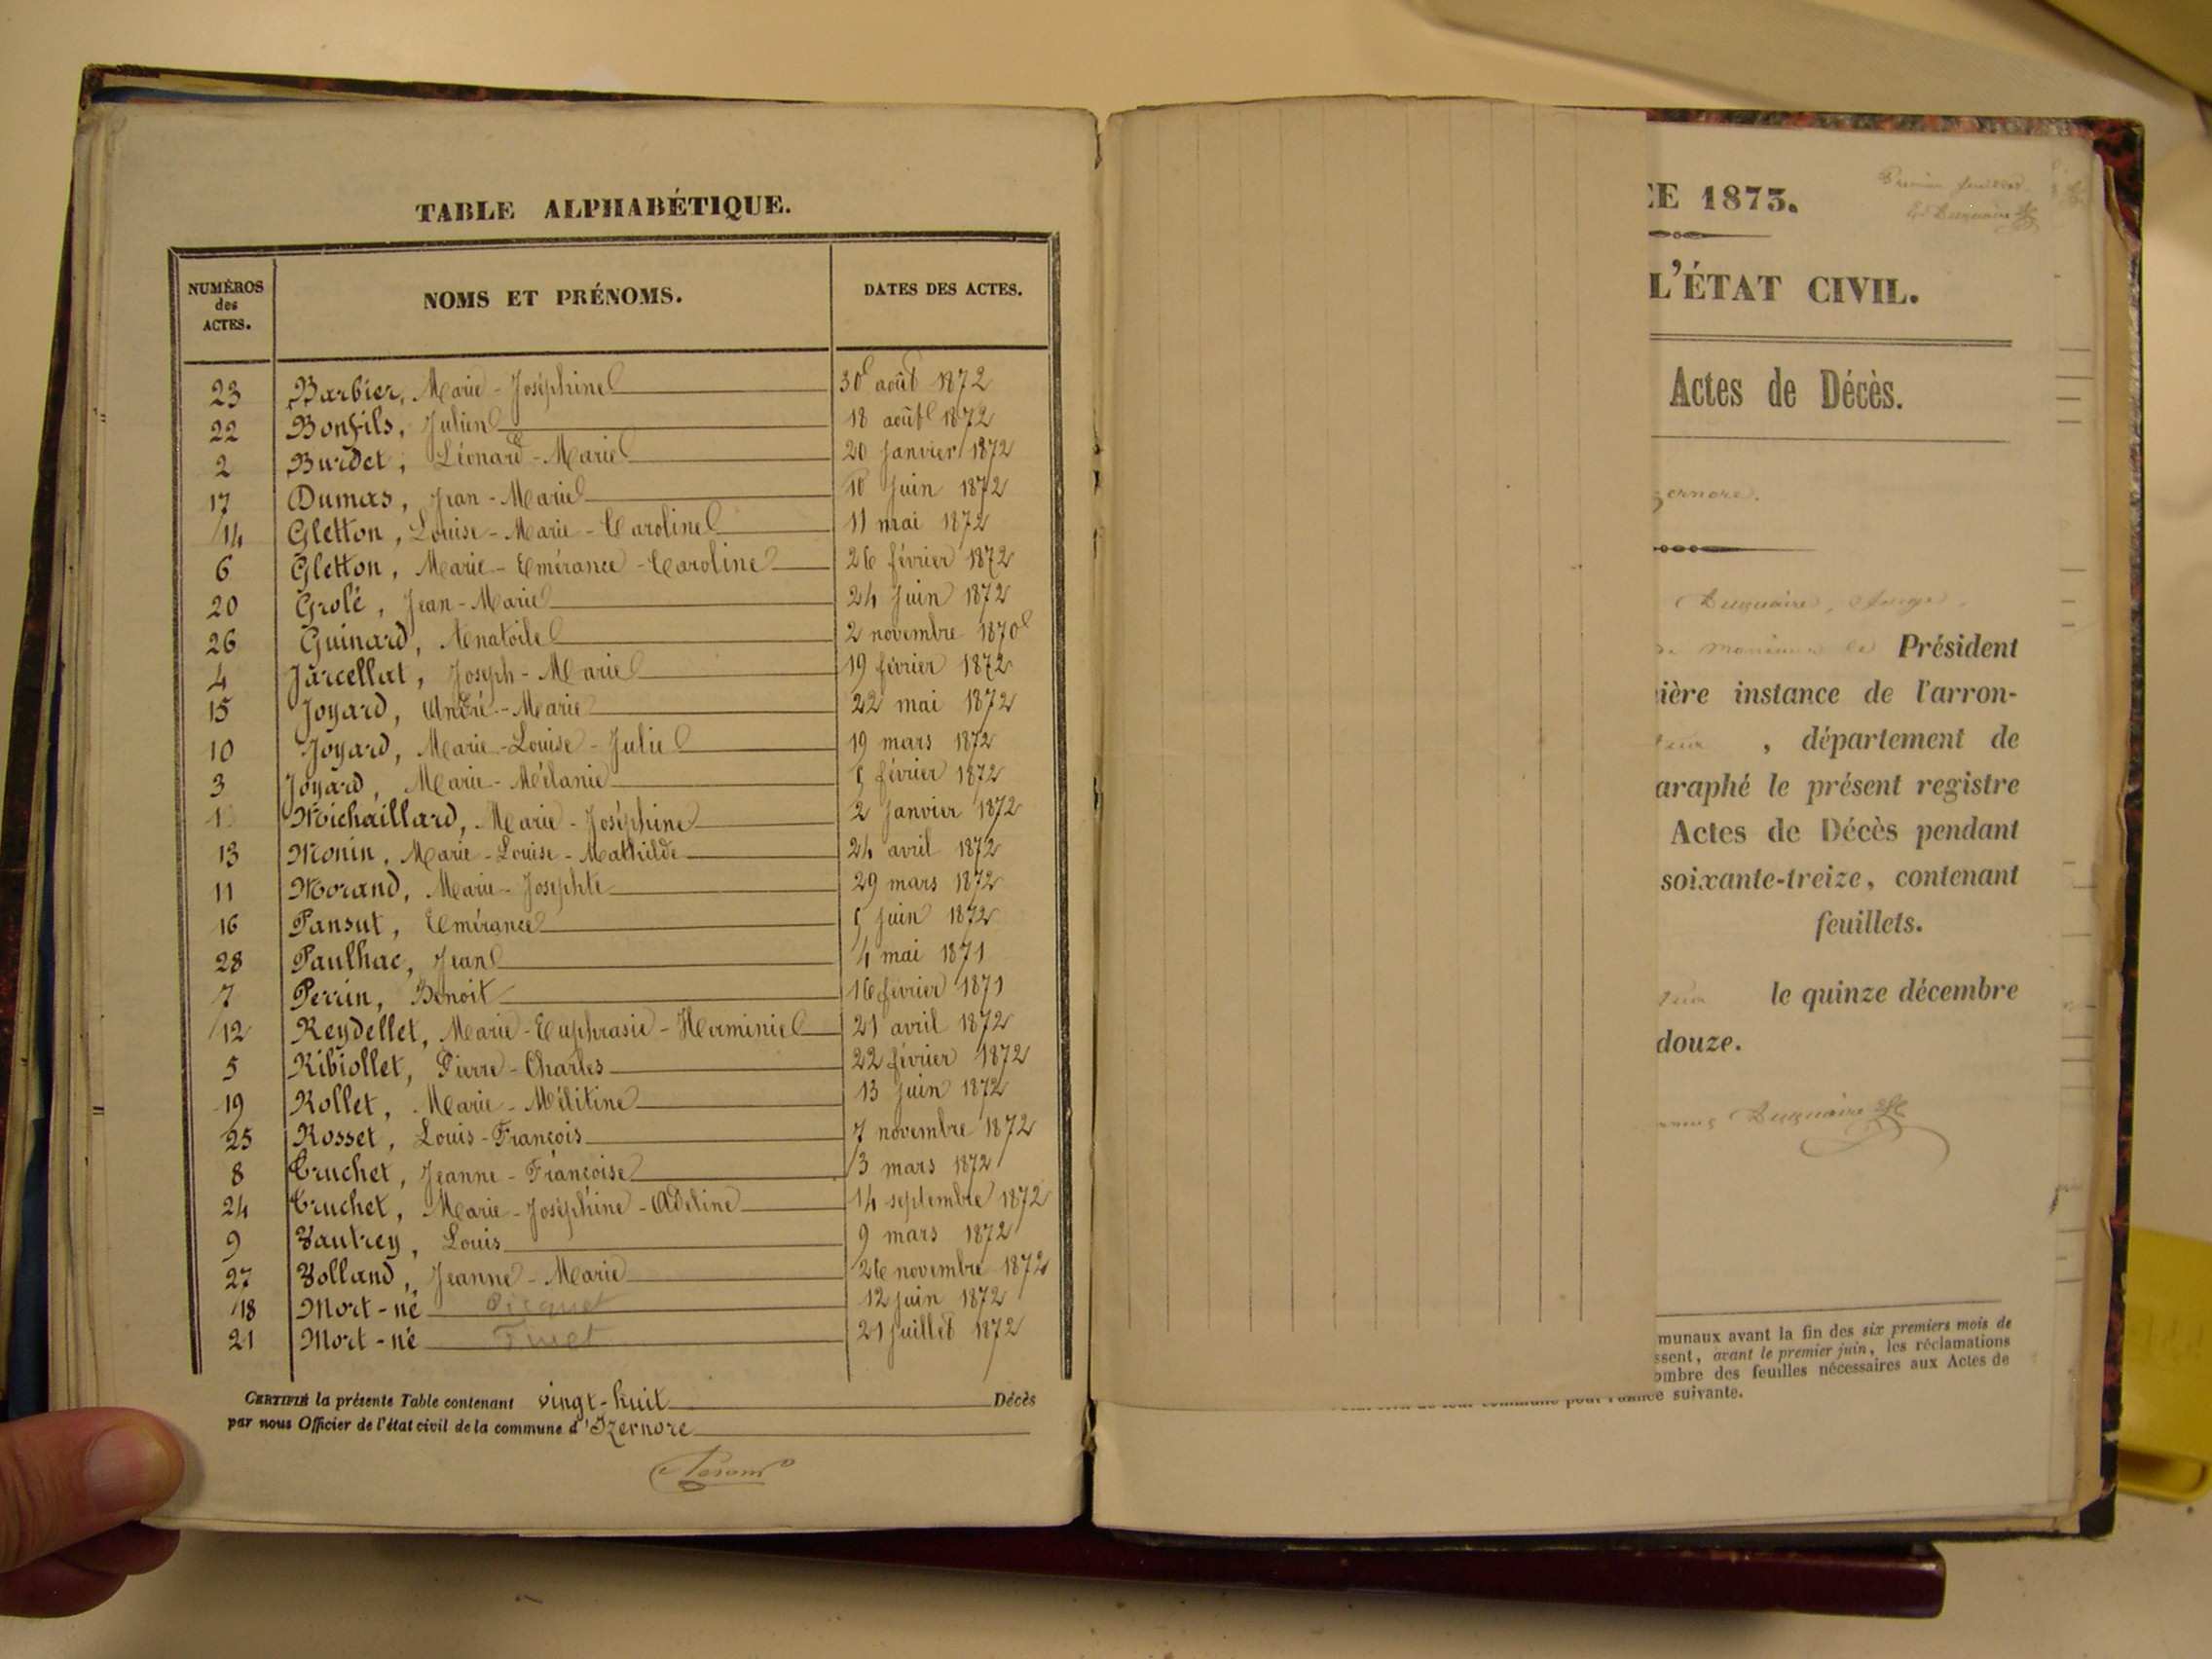 TABLE ALPHABÉTIQUE.
NUMÉROS des ACTES. NOMS ET PRÉNOMS. DATES DES ACTES.
23 Barbier, Marie-Joséphine 30 août 1872
22 Bonfils, Julien 18 août 1872
2 Burdet, Léonard-Marie 20 Janvier 1872
17 Dumas, Jean-Marie 10 Juin 1872
14 Gletton, Louise-Marie-Caroline 11 mai 1872
6 Gletton, Marie-Emérance-Caroline 26 février 1872
20 Grolé, Jean-Marie 24 Juin 1872
26 Guinard, Anatoile 2 novembre 1870
4 Jarcellat, Joseph-Marie 19 février 1872
15 Joyard, André-Marie 22 mai 1872
10 Joyard, Marie-Louise-Julie 19 mars 1872
3 Joyard, Marie-Mélanie février 1872
1 Michaillard, Marie-Joséphine 2 Janvier 1872
13 Monin, Marie-Louise-Mathilde 24 avril 1872
11 Morand, Marie-Josephte 29 mars 1872
16 Pansut, Emérance Juin 1872
28 Paulhac, Jean 4 mai 1871
7 Perrin, Benoit 16 février 1871
12 Reydellet, Marie-Euphrasie-Herminie 21 avril 1872
5 Ribiollet, Pierre-Charles 22 février 1872
19 Rollet, Marie-Mélitine 13 Juin 1872
25 Rosset, Louis-François 7 novembre 1872
8 Truchet, Jeanne-Françoise 3 mars 1872
24 Truchet, Marie-Joséphine-Adeline 14 septembre 1872
9 Vautrey, Louis 9 mars 1872
27 Volland, Jeanne-Marie 26 novembre 1872
18 Mort-né 12 juin 1872
21 Mort-né 21 Juillet 1872
CERTIFIÉ la présente Table contenant vingt-huit Décès
par nous Officier de l'état civil de la commune d'Izernore
E 1873.
L'ÉTAT CIVIL.
Actes de Décès.
zernore.
Président
ière instance de l'arron-
, département de
araphé le présent registre
Actes de Décès pendant
soixante-treize, contenant
feuillets.
le quinze décembre
douze.
munaux avant la fin des six premiers mois de
ssent, avant le premier juin, les réclamations
ombre des feuilles nécessaires aux Actes de
commune pour l'année suivante.